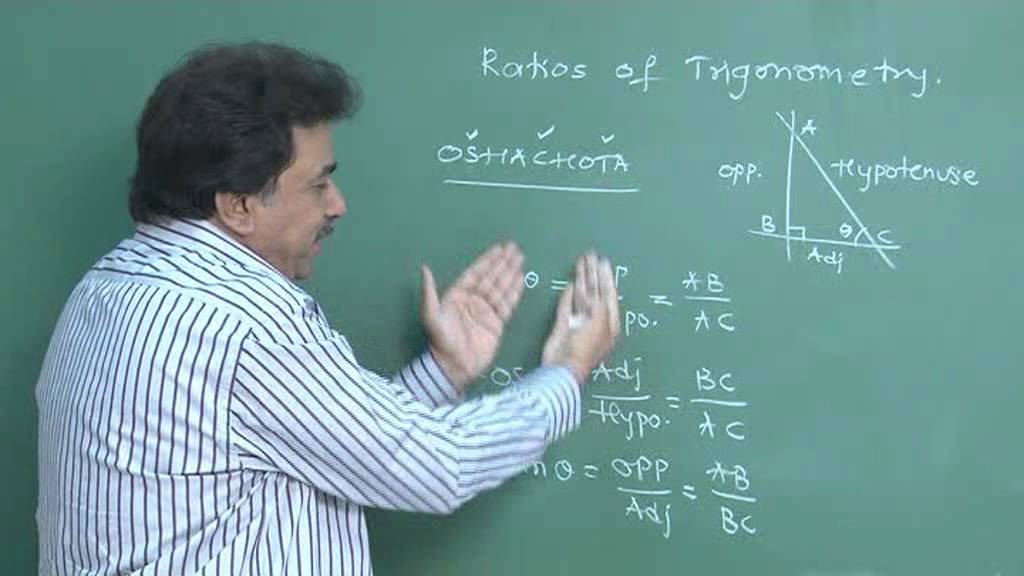 Ratios of Trigonometry.
OSHACHOTA
A
opp. Hypotenuse
B θ C
Adj
θ = AB / AC
Adj / Hypo. = BC / AC
θ = opp / Adj = AB / BC